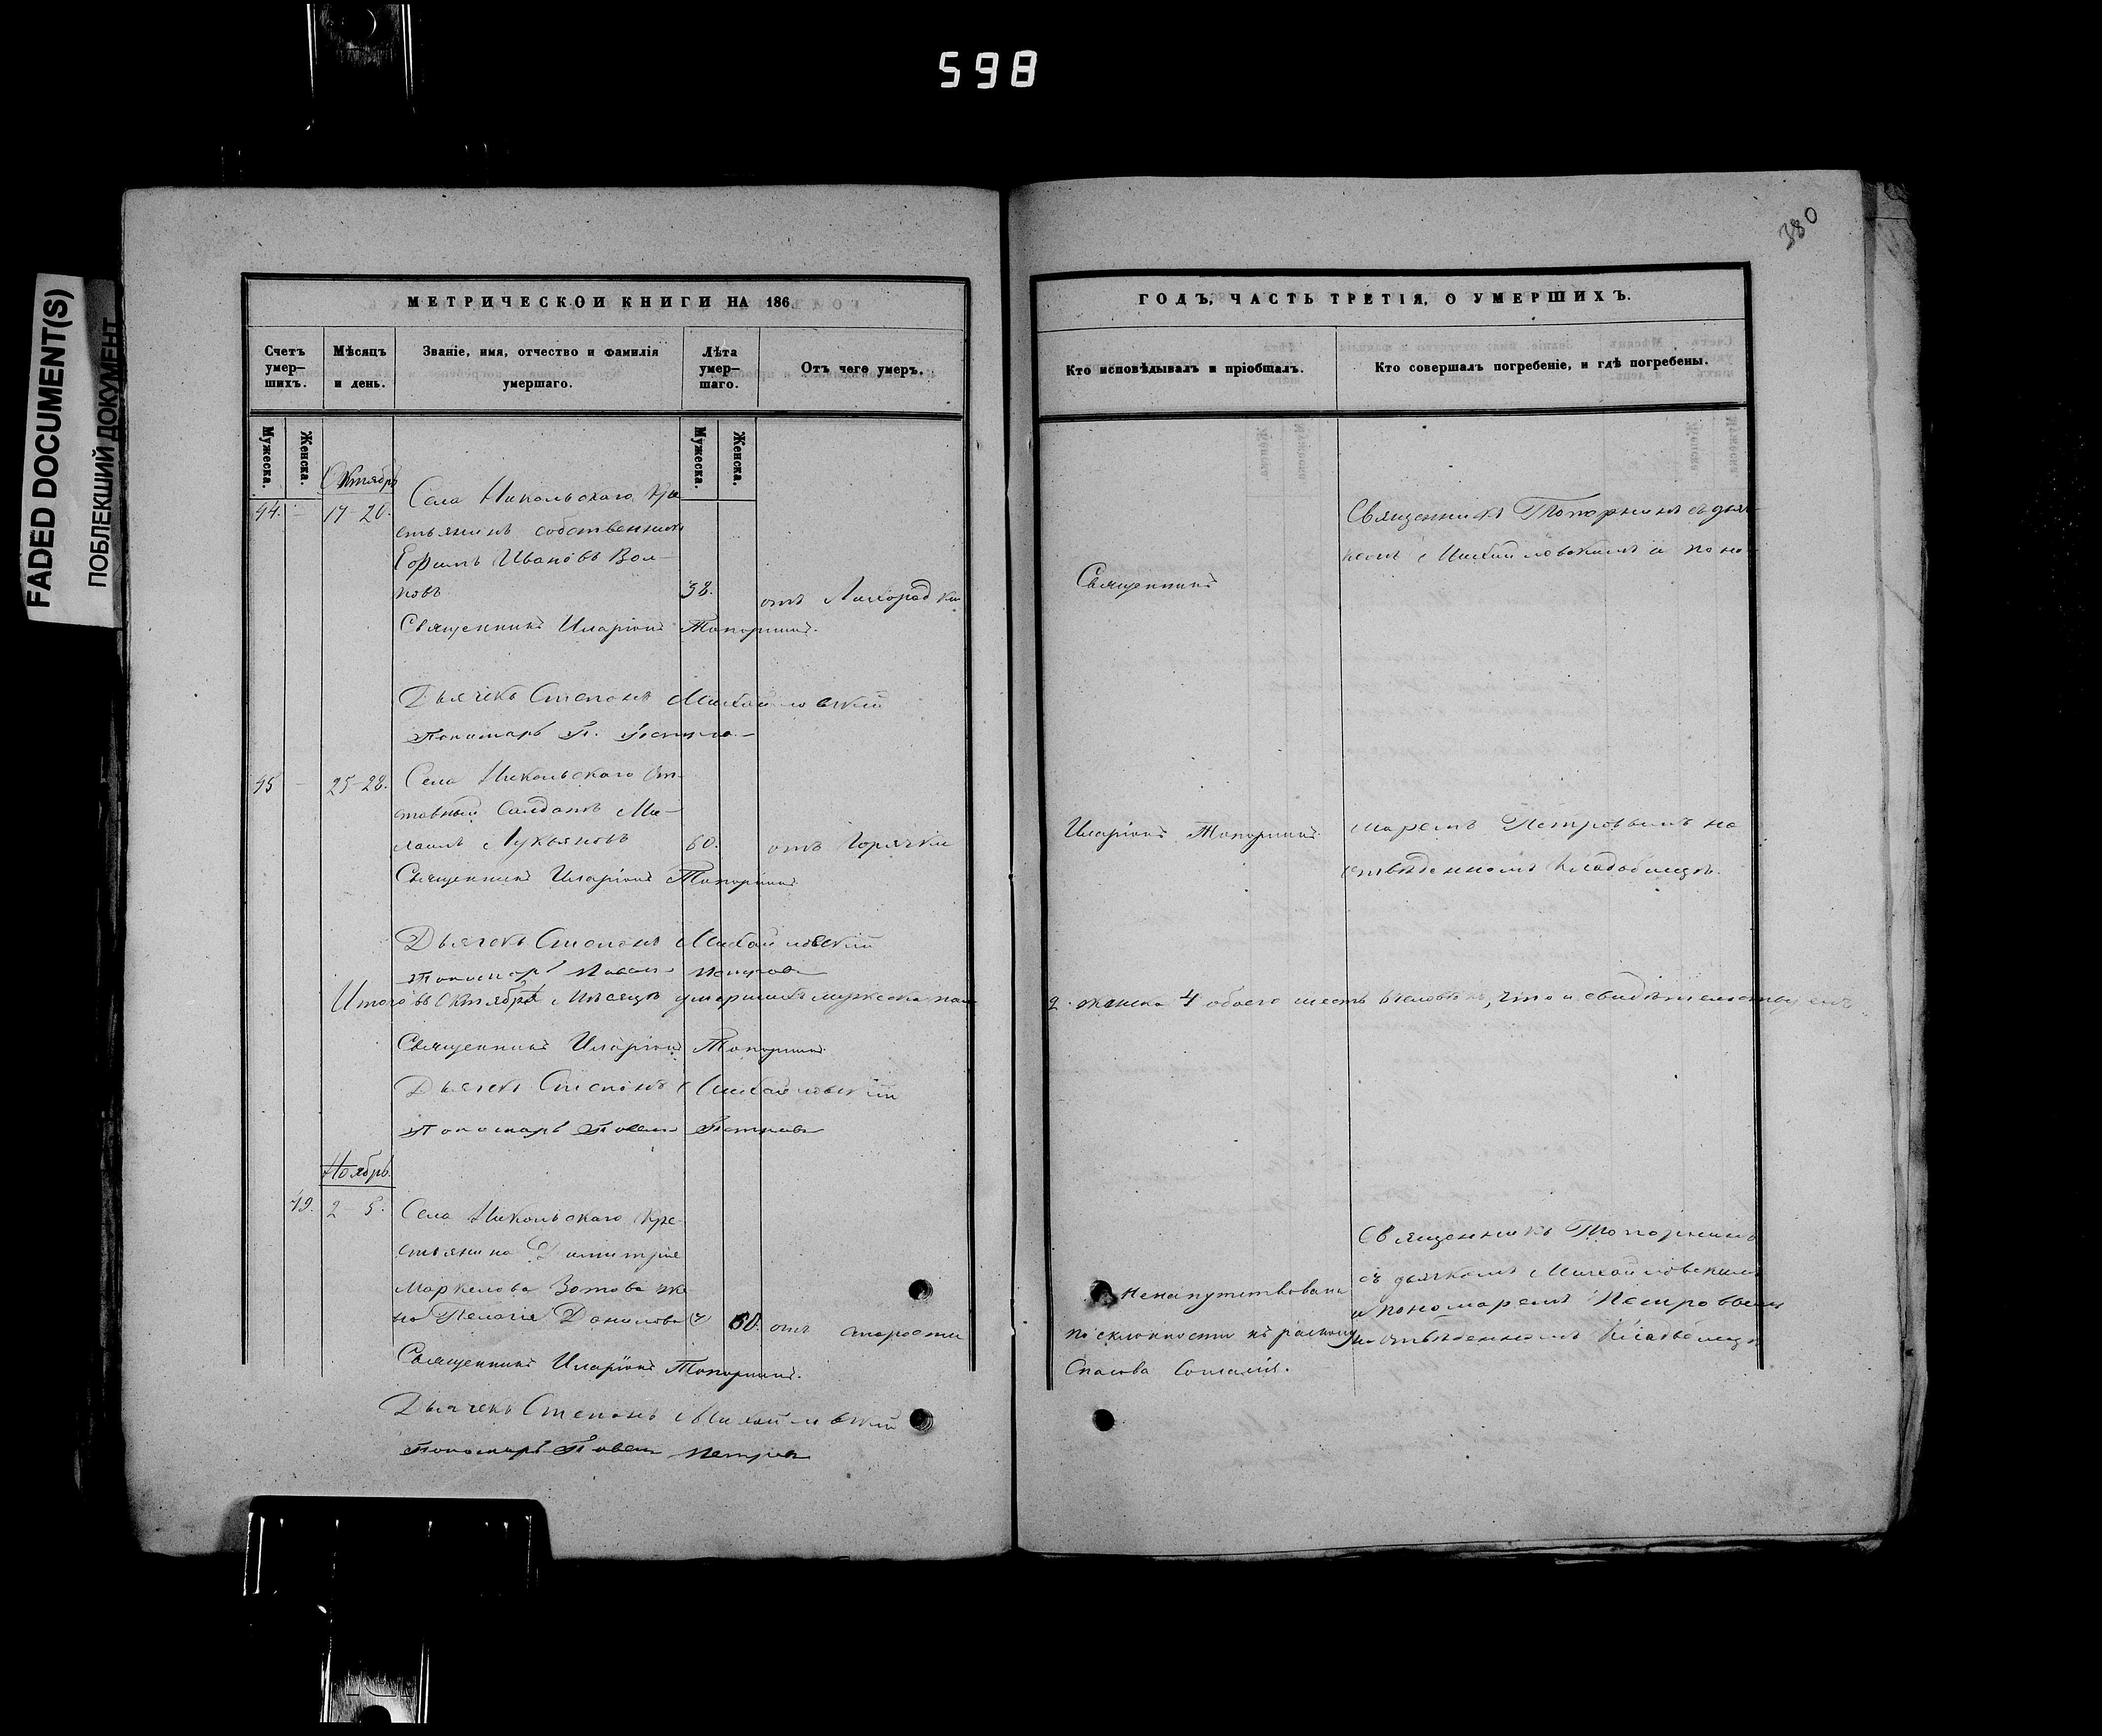 598
FADED DOCUMENT(S)
ПОБЛЕКШИЙ ДОКУМЕНТ
380
МЕТРИЧЕСКОЙ КНИГИ НА 186
Счетъ умер-шихъ.
Мѣсяцъ и день.
Званіе, имя, отчество и фамилія умершаго.
Лѣта умер-шаго.
Отъ чего умеръ.
Мужеска.
Женска.
Мужеска.
Женска.
Октябрь
44. - 17 20. Села Никольскаго Кре
стьянинъ собственникъ
Ефимъ Ивановъ Вол-
ковъ 38. отъ Лихорадки
Священникъ Иларіонъ Топорнинъ.
Дьячекъ Степанъ Михайловскій
Пономарь П. Петровъ
45 - 25-28. Села Никольскаго От-
ставный Салдатъ Ми-
хаилъ Лукьяновъ 60. отъ Горячки
Священникъ Иларіонъ Топорнинъ
Дьячекъ Степанъ Михайловскій
Пономарь Павелъ Петровъ
Итого въ Октябрѣ мѣсяцѣ умершихъ мужеска пола
Священникъ Иларіонъ Топорнинъ
Дьячекъ Степанъ Михайловскій
Пономарь Павелъ Петровъ
Ноябрь
49. 2 5. Села Никольскаго Кре
стьянина Димитрія
Маркелова Зотова же
на Пелагія Данилова 60. отъ старости
Священникъ Иларіонъ Топорнинъ.
Дьячекъ Степанъ Михайловскій
Пономарь Павелъ Петровъ
ГОДЪ, ЧАСТЬ ТРЕТІЯ, О УМЕРШИХЪ.
Кто исповѣдывалъ и пріобщалъ.
Кто совершалъ погребеніе, и гдѣ погребены.
Священникъ
Иларіонъ Топорнинъ
Священникъ Топорнинъ съ дьяч
комъ Михайловскимъ и поно
маремъ Петровымъ на
отвѣденномъ кладбищѣ.
2. женска 4 обоего шесть человѣкъ, что и свидѣтельствуемъ
Ненапутствована
по склонности къ расколу
Спасова Согласія.
Священникъ Топорнинъ
съ дьячкомъ Михайловскимъ
и пономаремъ Петровымъ
на отвѣденномъ кладбищѣ